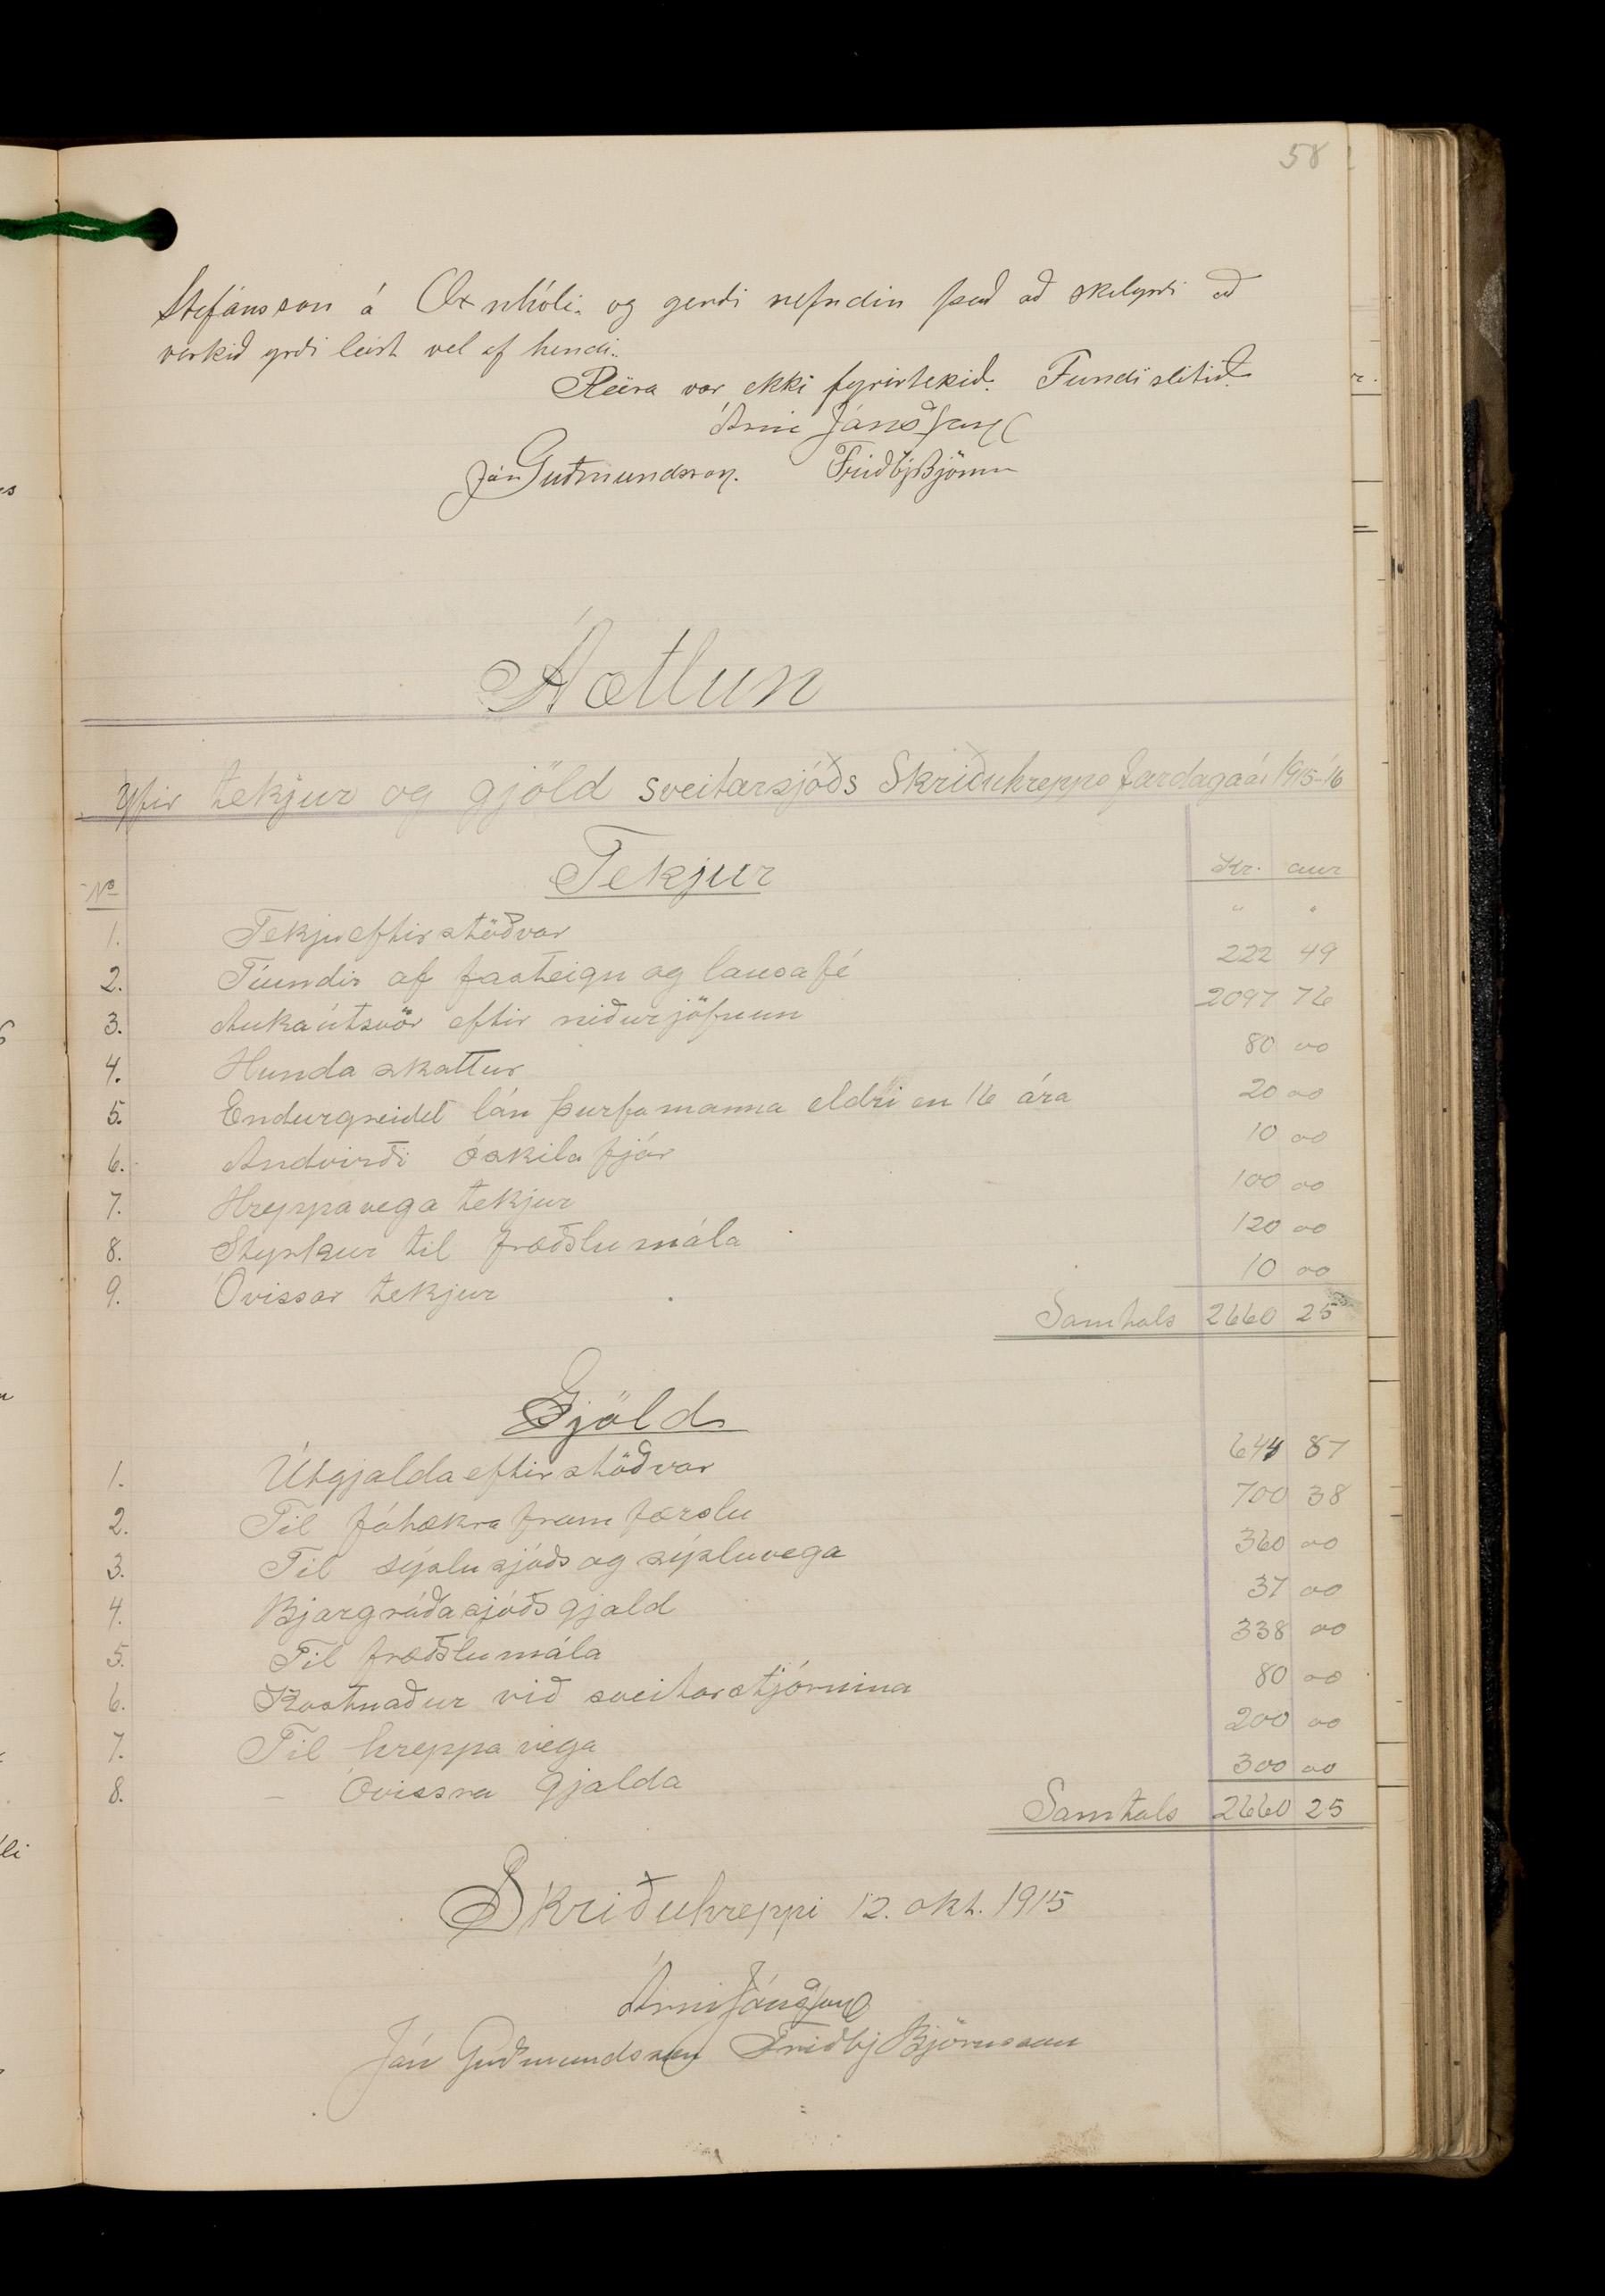 58
Stefánsson á Oxnhóli. og gerði nefndin það að skilyrði að
verkið yrði leist vel af hendi.
Fleira var ekki fyrirtekið. Fundi slitið.
Árni Jónsson
Jón Guðmundsson. Friðbj Björnss
Áætlun
yfir tekjur og gjöld sveitarsjóðs Skriðuhrepps fardagaár 1915-16
Tekjur
No Kr. aur
1. Tekjueftirstöðvar " "
2. Tíundir af fasteign og lausafé 222 49
3. Aukaútsvör eftir niðurjöfnun 2097 76
4. Hunda skattur 80 00
5. Endurgreidd lán þurfamanna eldri en 16 ára 20 00
6. Andvirði óskila fjár 10 00
7. Hreppavega tekjur 100 00
8. Styrkur til fræðslumála 120 00
9. Óvissar tekjur 10 00
Samtals 2660 25
Gjöld
1. Útgjaldaeftirstöðvar 644 87
2. Til fátækra framfærslu 700 38
3. Til sýslusjóðs og sýsluvega 360 00
4. Bjargráðasjóðsgjald 37 00
5. Til fræðslumála 338 00
6. Kostnaður við sveitarstjórnina 80 00
7. Til hreppavega 200 00
8. – Óvissra gjalda 300 00
Samtals 2660 25
Skriðuhreppi 12. okt. 1915
Árni Jónsson
Jón Guðmundsson Friðbj Björnsson